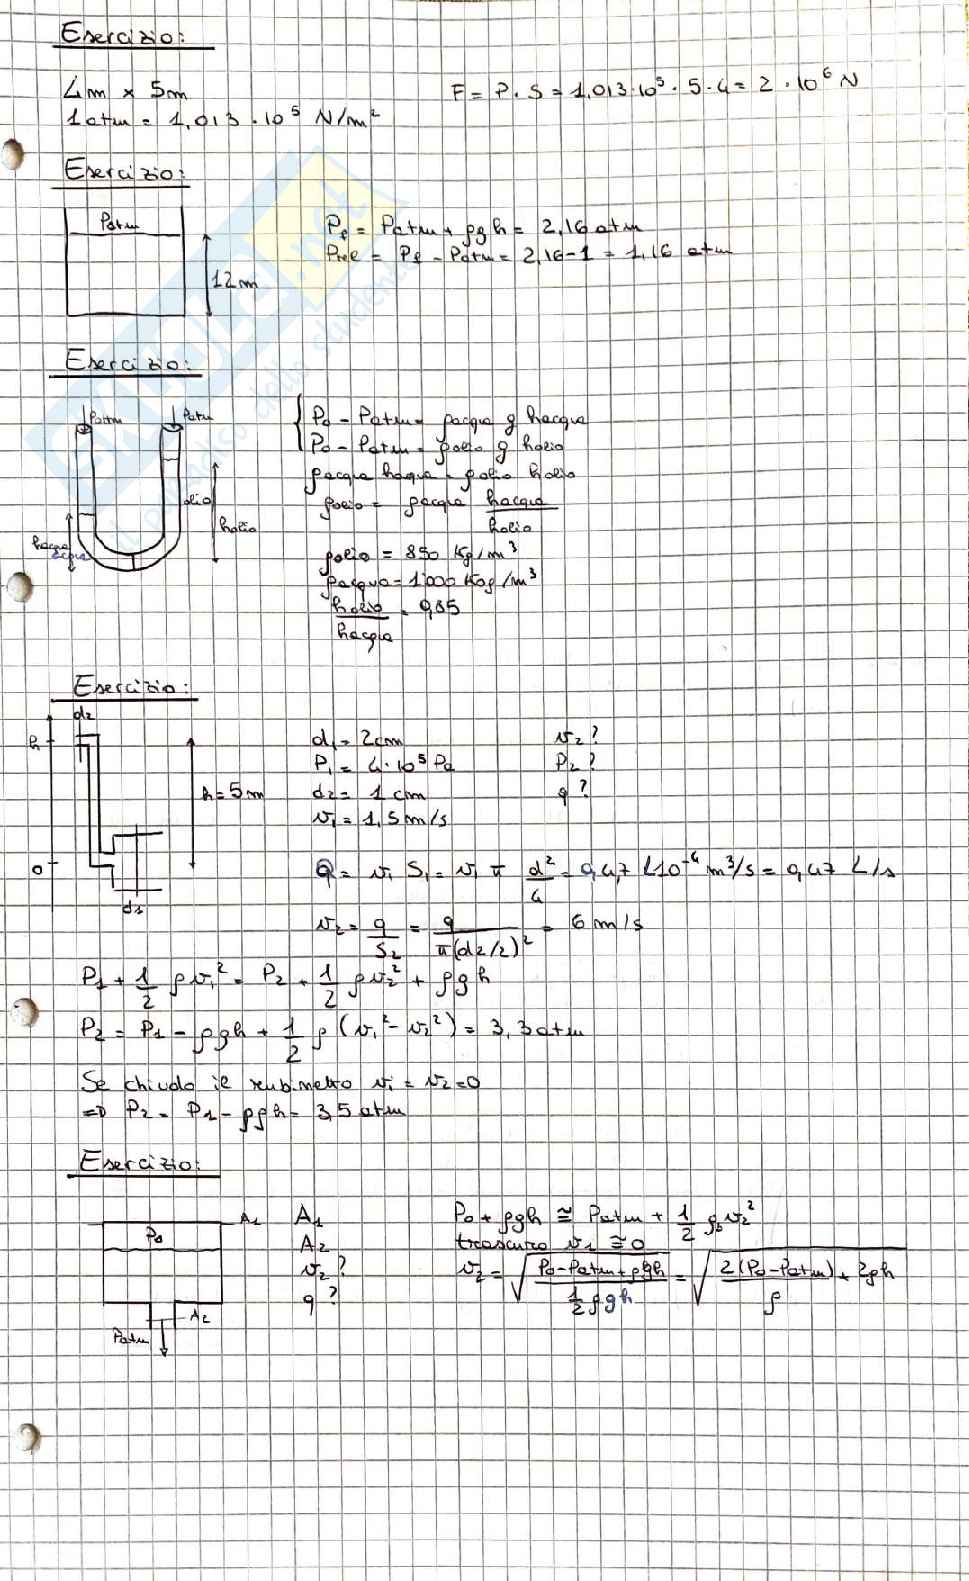 Esercizio:
4m x 5m
F = P . S = 1,013.10⁵ . 5.4 = 2 . 10⁶ N
1 atm = 1,013 . 10⁵ N/m²
Esercizio:
Patm
12m
Pf = Patm + ρgh = 2,16 atm
Prel = Pf - Patm = 2,16-1 = 1,16 atm
SKUOLA.net
il paradiso dello studente
Esercizio:
Patm
Patm
olio
holio
hacqua
acqua
P0 - Patm = ρacqua g hacqua
P0 - Patm = ρolio g holio
ρacqua hacqua = ρolio holio
ρolio = ρacqua hacqua / holio
ρolio = 850 Kg/m³
ρacqua = 1000 Kg/m³
holio / hacqua = 0,85
Esercizio:
d2
h
h = 5m
0
d1
d1 = 2cm
v2?
P1 = 4.10⁵ Pa
P2?
d2 = 1 cm
q?
v1 = 1,5 m/s
Q = v1 S1 = v1 π d²/4 = 0,47 10⁻⁴ m³/s = 0,47 L/s
v2 = q/S2 = q/π(d2/2)² = 6 m/s
P1 + 1/2 ρv1² = P2 + 1/2 ρv2² + ρgh
P2 = P1 - ρgh + 1/2 ρ (v1² - v2²) = 3,3 atm
Se chiudo il rubinetto v1 = v2 = 0
=> P2 = P1 - ρgh = 3,5 atm
Esercizio:
A1
P0
A2
Patm
A1
A2
v2?
q?
P0 + ρgh ≅ Patm + 1/2 ρv2²
trascuro v1 ≅ 0
v2 = √(P0 - Patm + ρgh / 1/2 ρgh) = √(2(P0 - Patm) + 2gh / ρ)